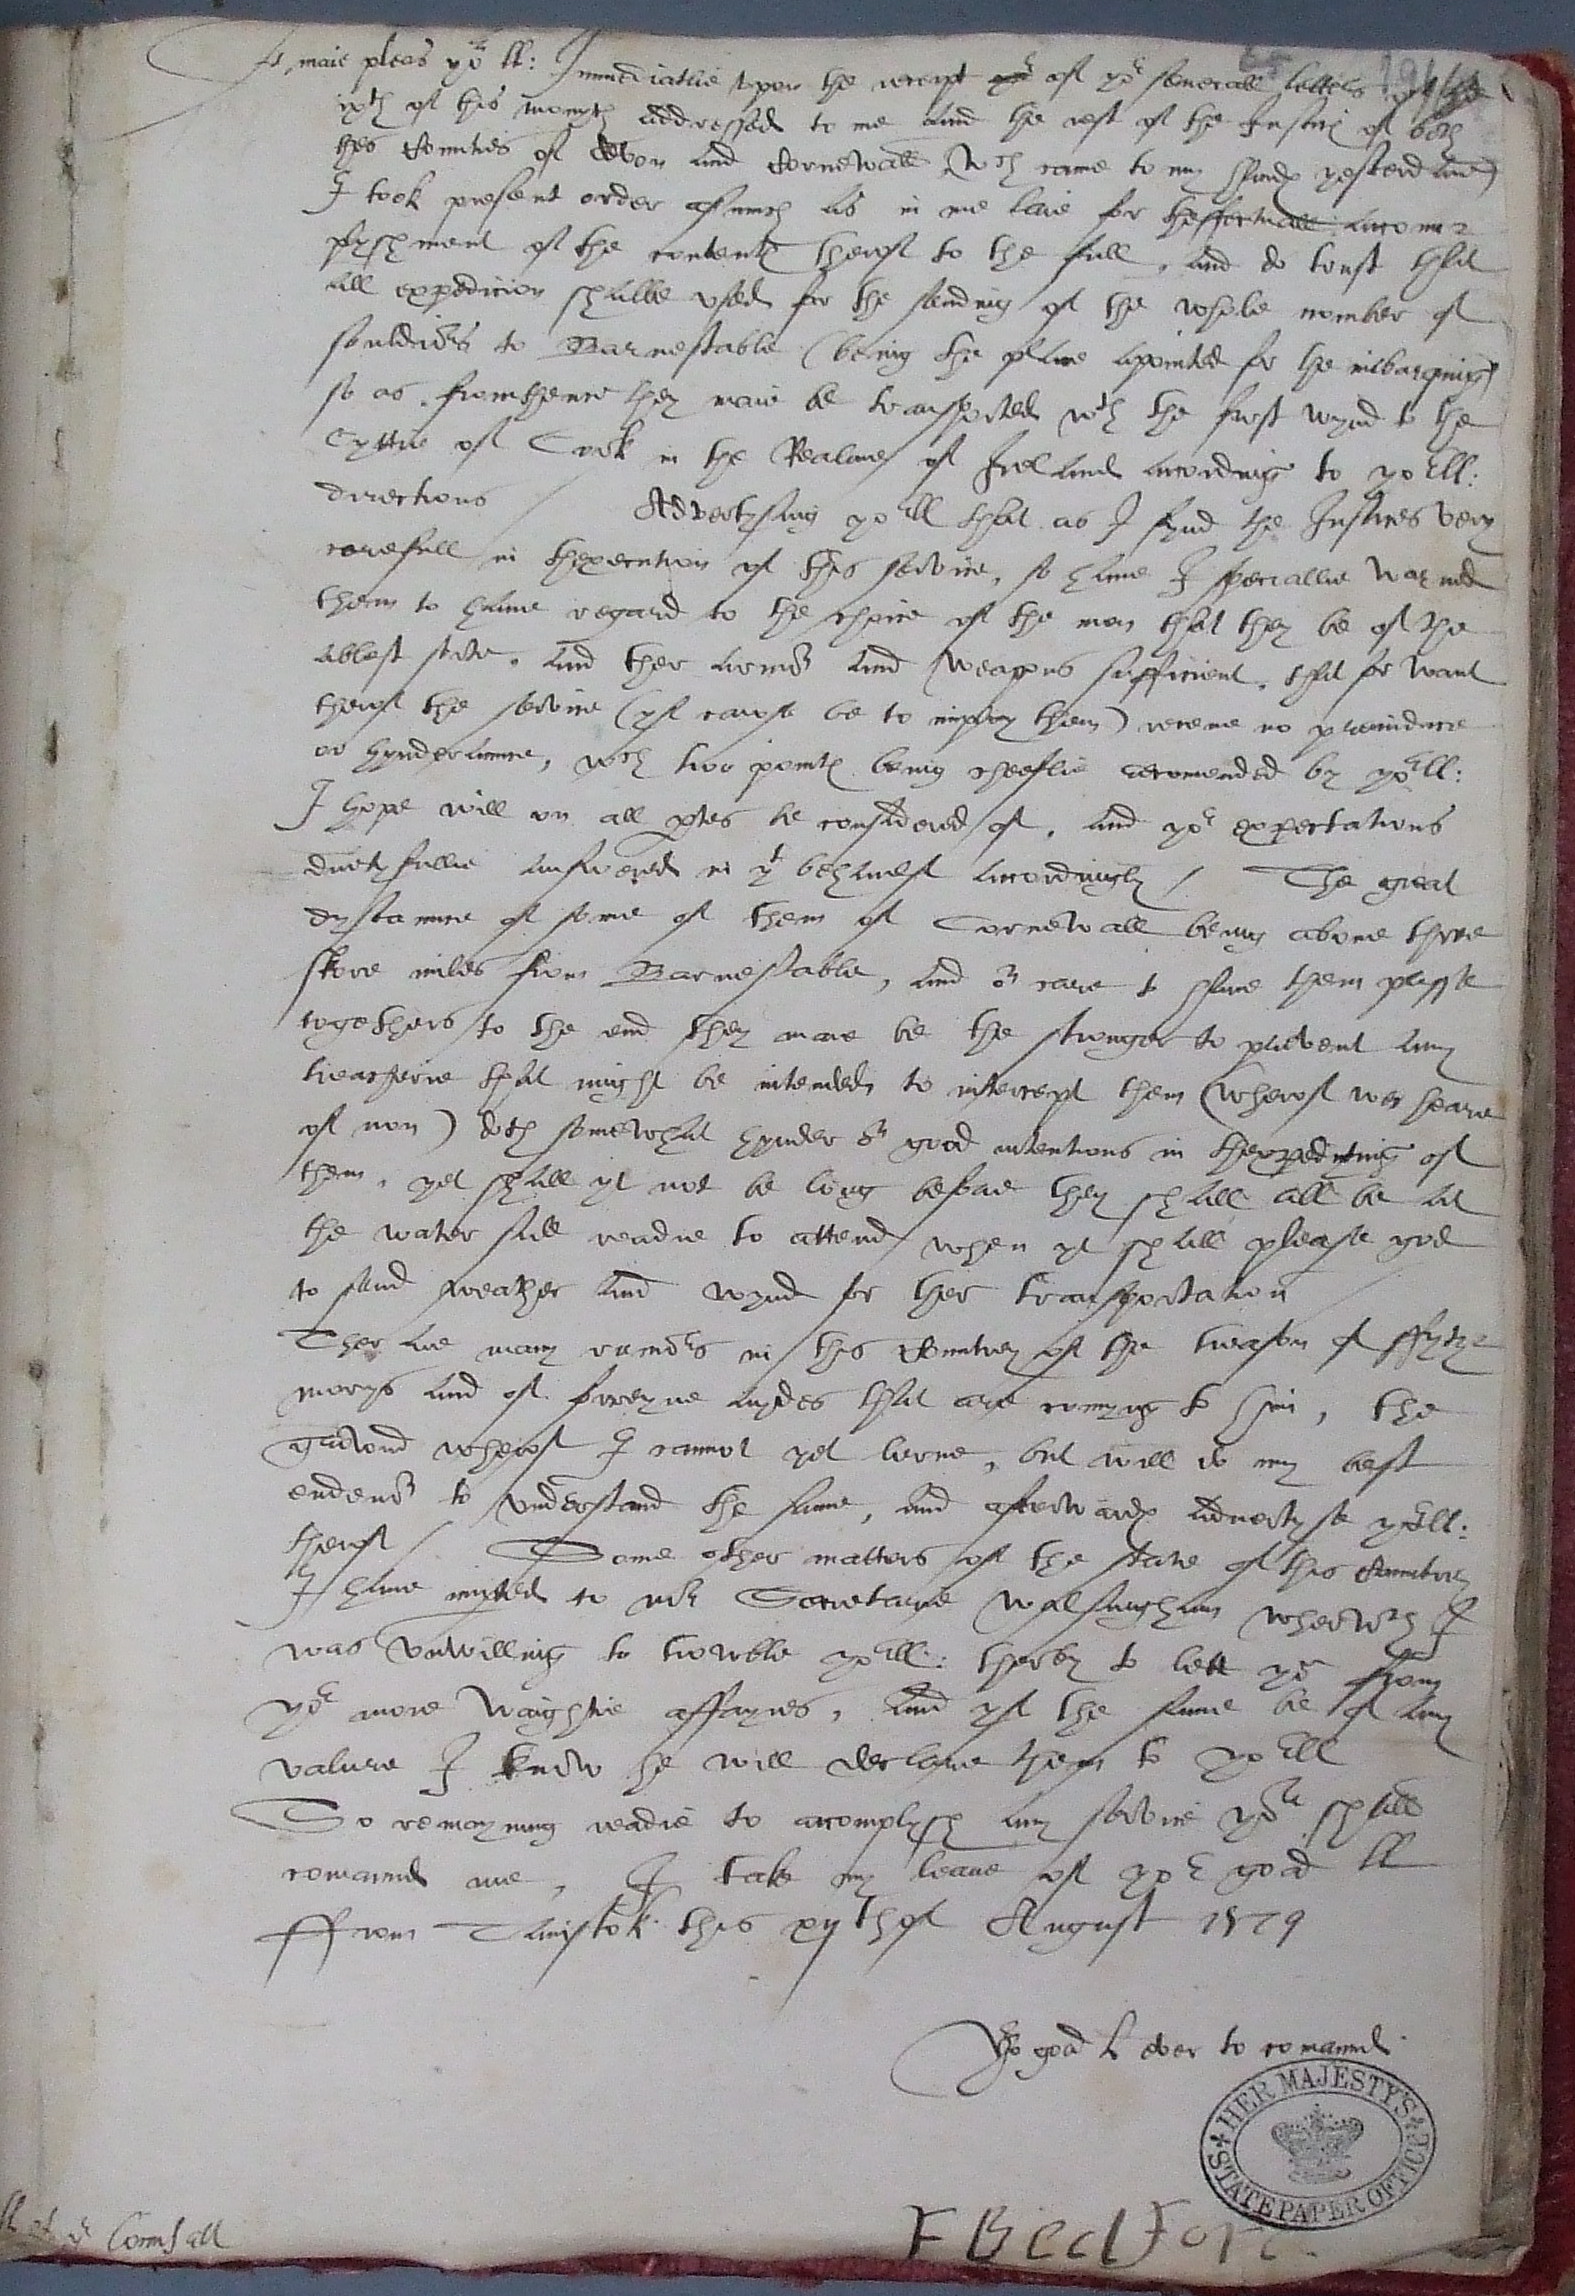 It maie pleas yor ll: Immediatlie upon the receipt of yor severall letters of the
ixth of this moneth addressed to me and the rest of the Justices of both
thes Counties of Devon and Cornewall (wch came to my hands yesterdaie)
I took present order asmuch as in me laie for theffectuall accom=
plyshment of the contents therof to the full, and do trust that
all expedicion shalbe used for the sending of the whole nomber of
souldiors to Barnestable (being the place apointed for the inbarquing)
so as from thence they maie be transported wth the first wynd to the
Cyttie of Cork in the Realme of Ireland according to yor ll:
directions / Advertysing yor ll that as I fynd the Justices very
carefull in thexecution of this service, so have I speciallie warned
them to have regard to the choice of the men that they be of the
ablest sorte, and ther armor and weapons sufficient, that for want
therof the service (yf cause be to imploy them) receve no preiudice
or hynderaunce, wch two points being cheeflie recomended by yor ll:
I hope will on all ptes be considered of, and yor expectations
duetyfullie answered in yt behaulf accordingly / The great
dystaunce of some of them of Cornewall being above three
skore miles from Barnestable, and or care to have them passe
togethers to the end they maie be the stronger to prevent any
treacherie that might be intended to intercept them (wherof we heare
of non) doth somewhat hynder or good intentions in thexpediting of
them, yet shall yt not be long before they shall all be at
the water side readie to attend when yt shall please god
to send weather and wynd for ther transportation /
Ther are many rumors in this Countrey of the treason of ffytz=
morys and of forreyne aydes that are comyng to him, the
grownd wherof I cannot yet lerne, but will do my best
endevor to understand the same, and afterwards advertyse yor ll:
therof / Some other matters of the state of this Countrey
I have imparted to mr Secretarie Walsingham wherwth I
was unwilling to trowble yor ll: therby to lett yow from
yor more waightie affayres, and yf the same be of any
valure I know he will declare them to yor ll
So remayning readie to acomplysh any service yor ll shall
comaund me, I take my leave of yor good ll
ffrom Tavistok this xijth of August 1579
Yor good ll ever to comaund.
F Bedford.
HER MAJESTY'S STATE PAPER OFFICE
Cornwall